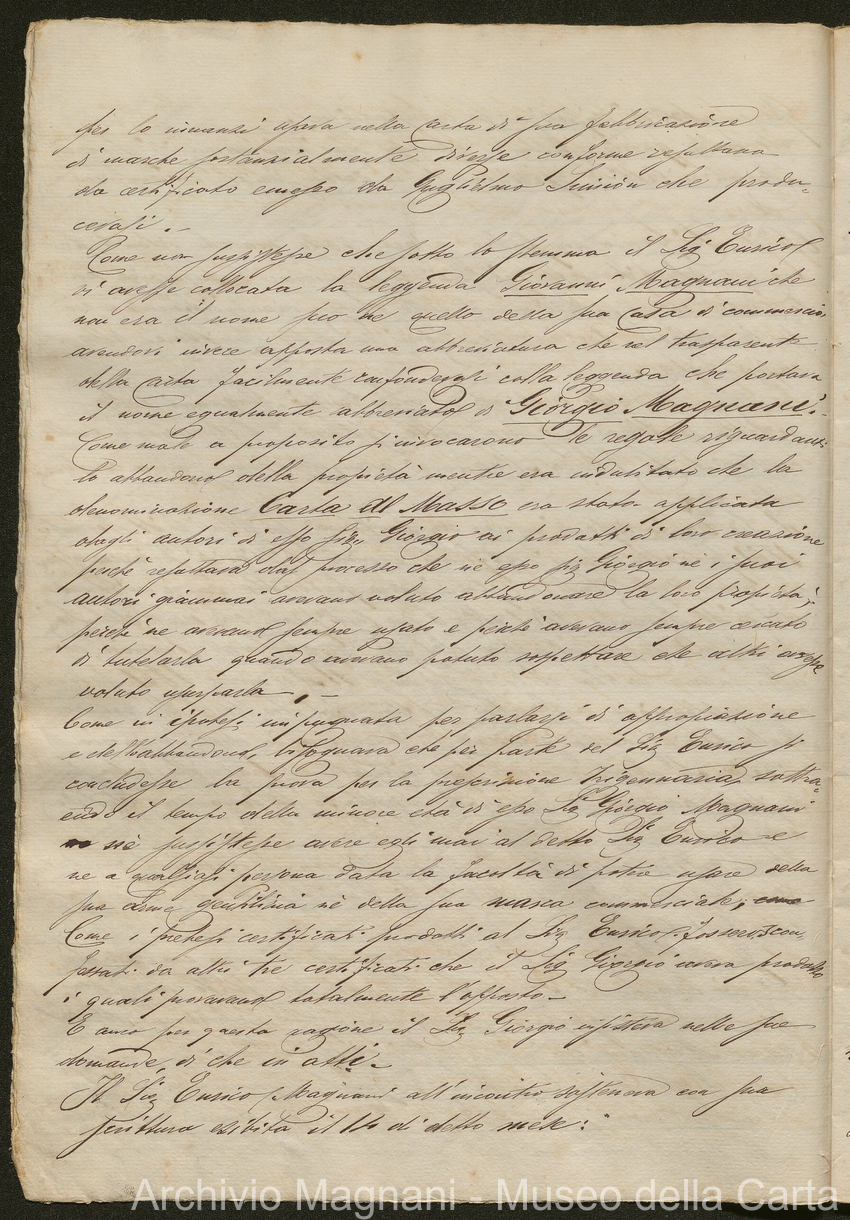 per lo innanzi usava nella carta di sua fabbricazione
di marche sostanzialmente diverse conforme resultava
da certificato emesso da Guglielmo che produ-
cevasi. -
Come non sussistesse che sotto lo stemma il Sig Enrico
vi avesse collocata la leggenda Giovanni Magnani che
non era il nome suo ne quello della sua Casa di commercio,
avendovi invece apposta una abbreviatura che nel trasparente
della carta facilmente confondevasi colla leggenda che portava
il nome egualmente abbreviato di Giorgio Magnani. -
Come male a proposito s'invocarono le regole riguardanti
lo abbandono della proprietà mentre era indubitato che la
denominazione Carta Al Masso era stata applicata
dagli autori di esso Sig. Giorgio ai prodotti di loro creazione
perché resultava dal processo che né esso Sig Giorgio né i suoi
autori giammai avevano voluto abbandonare la loro proprietà,
perché ne avevano sempre usato e perché avevano sempre cercato
di tutelarla quando avevano potuto sospettare che altri avesse
voluto usurparla. -
Come in ipotesi impugnata per parlarsi di appropriazione
e dell'abbandono, bisognava che per parte del Sig Enrico si
concludesse la prova per la prescrizione trigennaria, sottra-
endo il tempo della minore età di esso Sig Giorgio Magnani
né sussistesse avere egli mai al detto Sig Enrico e
ne a qualsiasi persona data la facoltà di potere usare della
sua arme gentilizia né della sua marca commerciale; come
Come i pretesi certificati prodotti al Sig Enrico fossero scon-
fessati da altri tre certificati che il Sig Giorgio aveva prodotto
i quali provavano totalmente l'opposto -
E anco per questa ragione il Sig Giorgio insisteva nelle sue
domande, di che in atti. -
Il Sig Enrico Magnani all'incontro sosteneva con sua
scrittura esibita il 14 di detto mese: "
Archivio Magnani - Museo della Carta